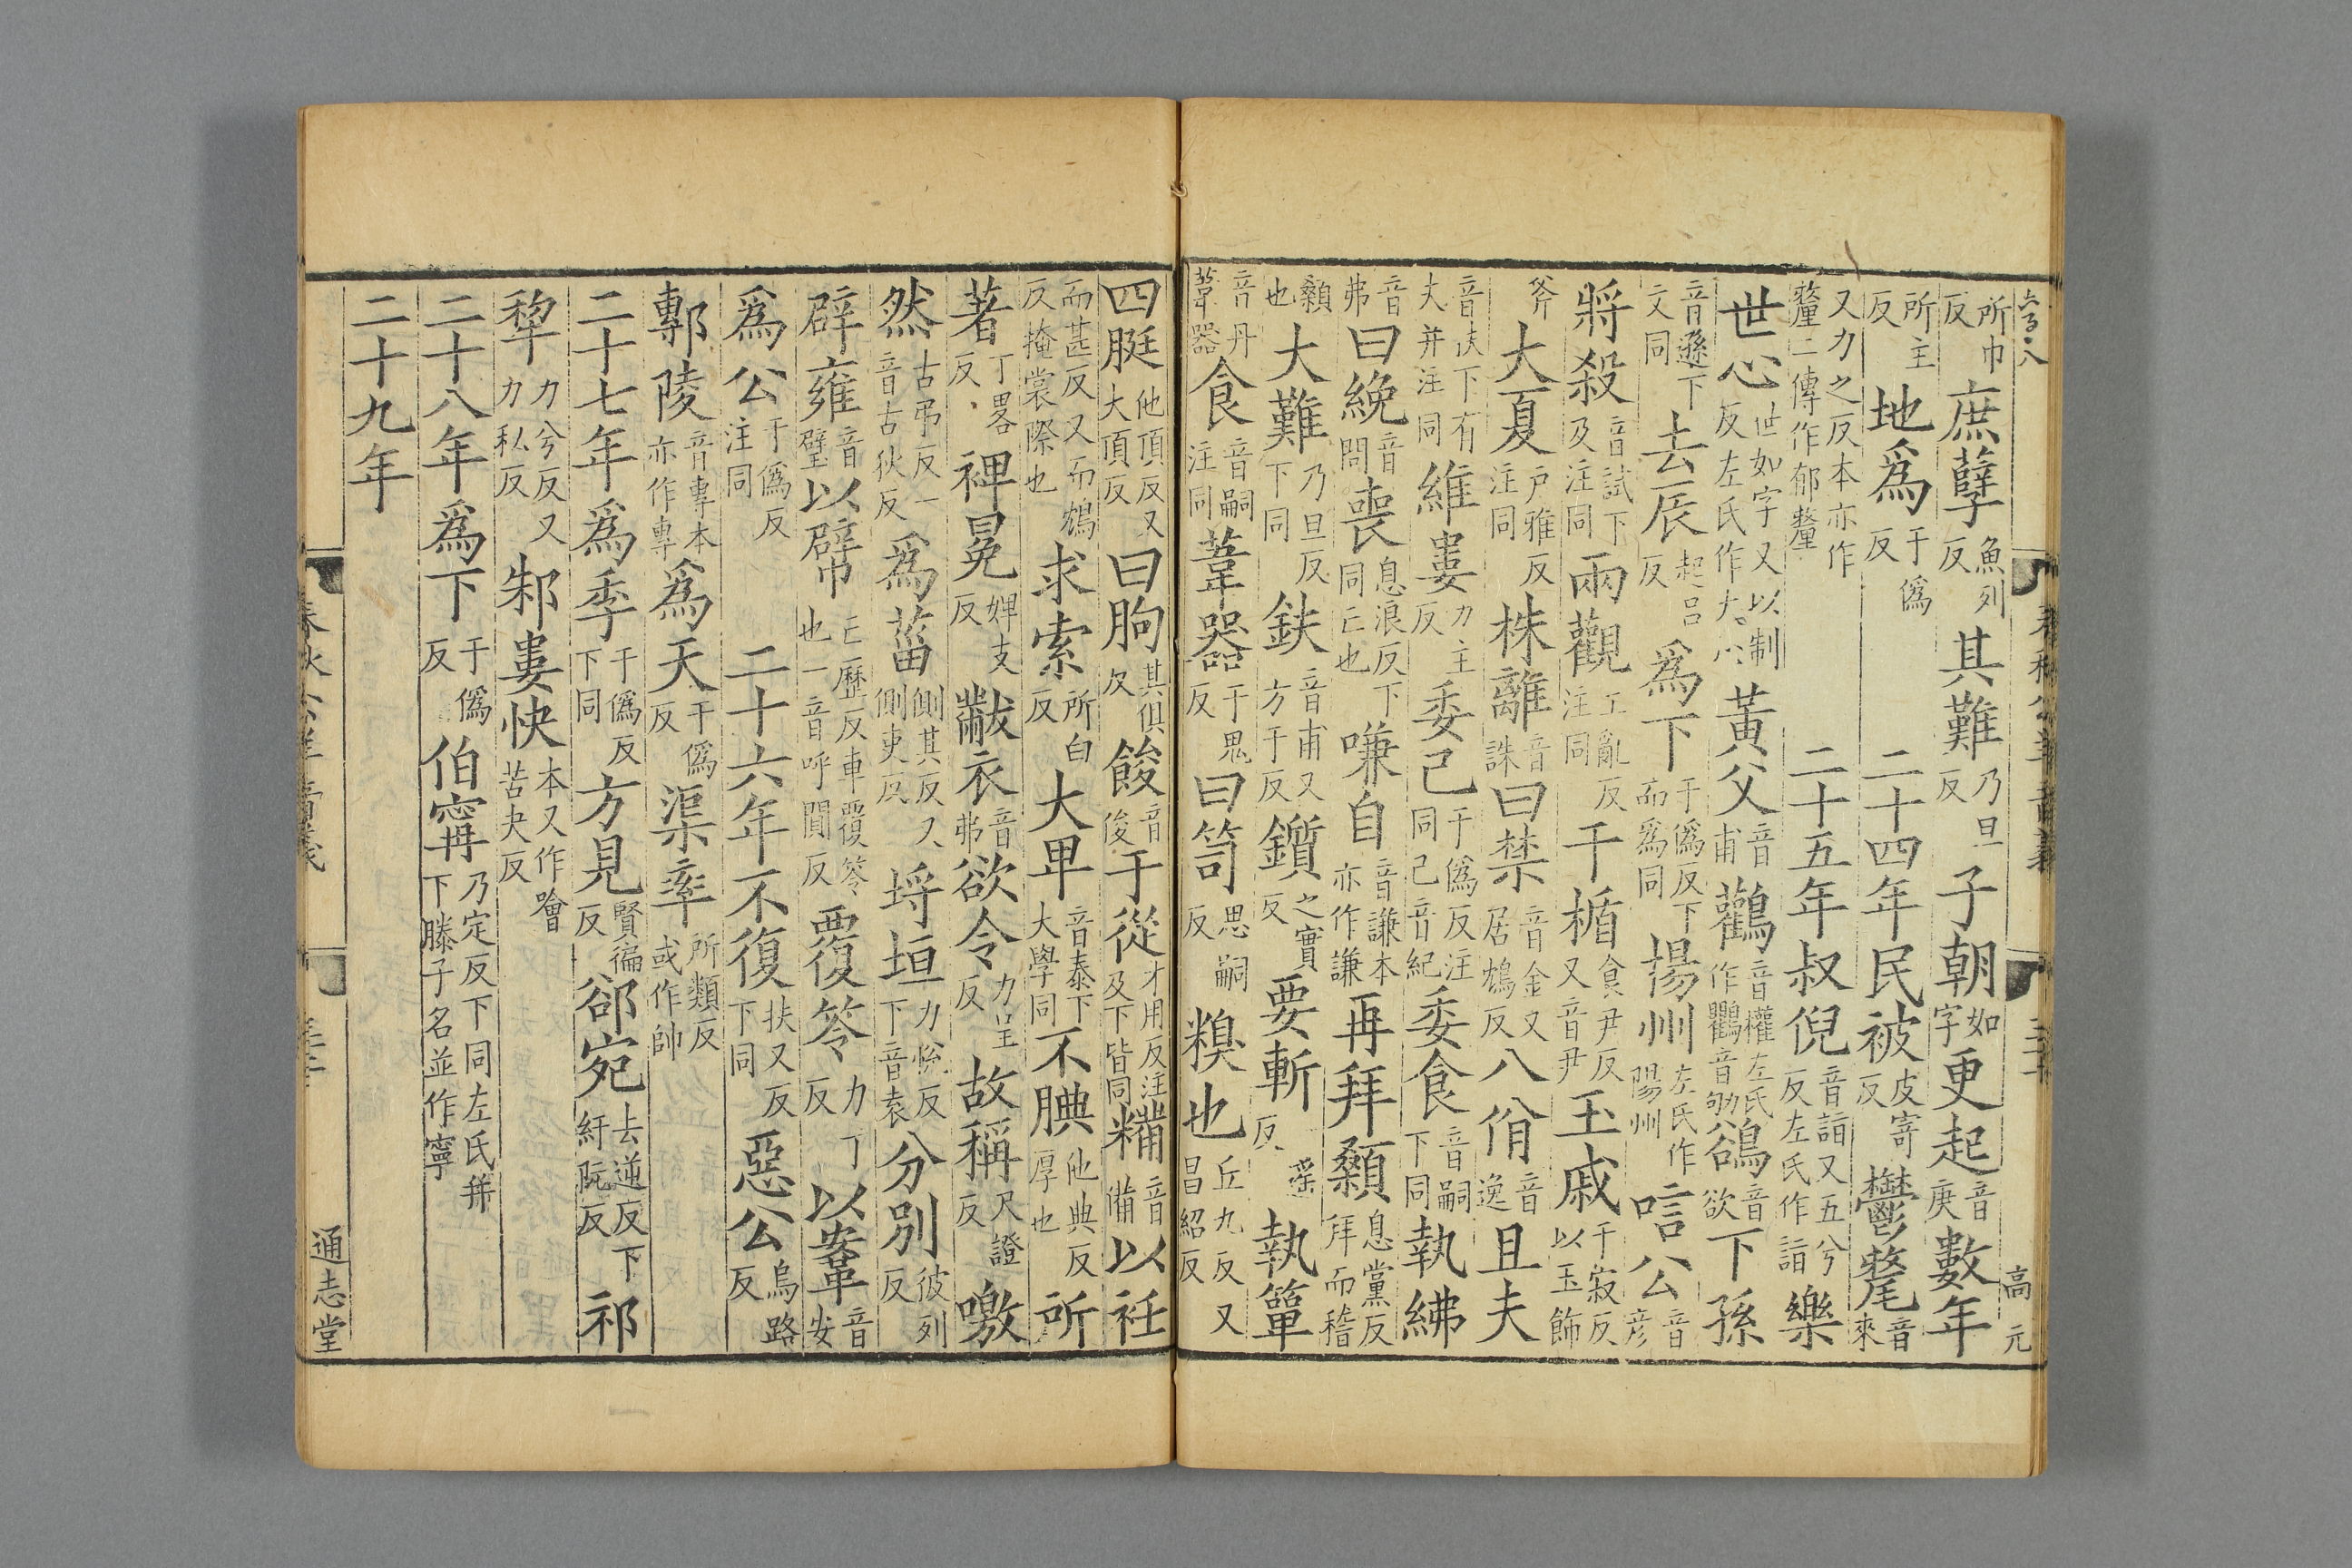 所巾反庶孽魚列反其難乃旦反子朝如字更起音庚數年
所主反地爲于僞反 二十四年民被皮寄反鬱氂音來
又力之反本亦作釐二傳作郁釐 二十五年叔倪音詣又五兮反左氏作詣樂
世心世如字又以制反左氏作大心黃父音甫鸛音權左氏作鸜音劬鵒音欲下孫
音遜下文同去辰起呂反爲下于僞反下而爲同揚州左氏作陽州唁公音彥
將殺音試下及注同兩觀工亂反注同干楯食尹反又音尹玉戚千寂反以玉飾
斧大夏戶雅反注同株離音誅曰禁音金又居鴆反八佾音逸且夫
音扶下有夫并注同維婁力主反委己于僞反注同己音紀委食音嗣下同執紼
音弗曰絻音問喪息浪反下同亡也嗛自音謙本亦作謙再拜顙息黨反拜而稽
顙也大難乃旦反下同鈇音甫又方于反鑕之實反要斬一遙反執簞
音丹葦器食音嗣注同葦器于鬼反曰笥思嗣反糗也丘九反又昌紹反
四脡他頂反又大頂反曰朐其俱反餕音俊于從才用反注及下皆同糒音備以衽
而甚反又而鴆反掩裳際也求索所白反大卑音泰下大學同不腆他典反厚也所
著丁畧反裨冕婢支反黻衣音弗欲令力呈反故稱尺證反噭
然古弔反一音古狄反爲菑側其反又側吏反埒垣力悅反下音袁分別彼列反
辟雍音璧以幦亡歷反車覆笭也一音呼閴反覆笭力丁反以鞌音安
爲公于僞反注同 二十六年不復扶又反下同惡公烏路反
鄟陵音專本亦作專爲天于僞反渠率所類反或作帥
二十七年爲季于僞反下同方見賢徧反郤宛去逆反下紆阮反祁
犂力兮反又力私反邾婁快本又作噲苦夬反
二十八年爲下于僞反伯寗乃定反下同左氏并下滕子名並作寧
二十九年
春秋公羊音義
通志堂
高元